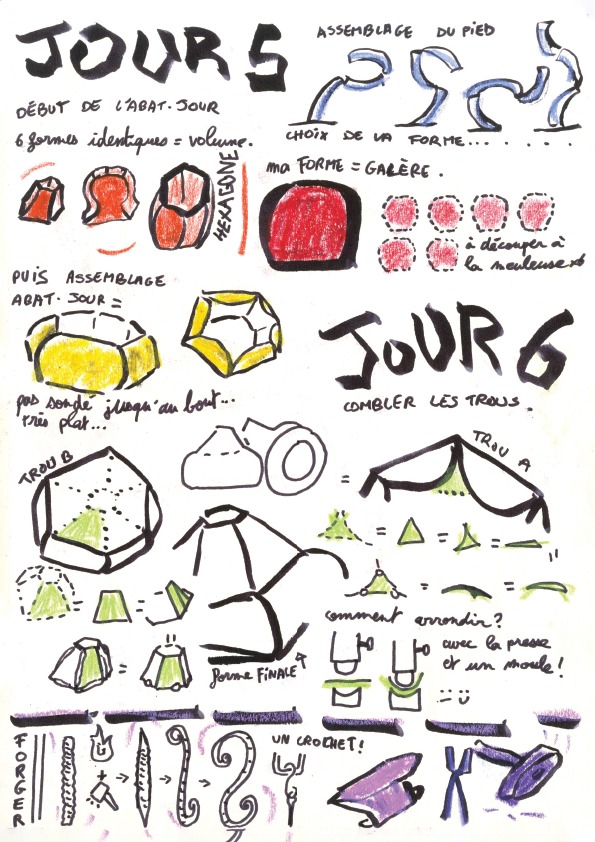 JOUR 5
ASSEMBLAGE DU PIED
DÉBUT DE L'ABAT-JOUR
6 formes identiques = volume.
CHOIX DE LA FORME... . . . .
HEXAGONE
ma FORME = GALÈRE.
à découper à
la meuleuse x6
PUIS ASSEMBLAGE
ABAT-JOUR =
JOUR 6
pas soudé jusqu'au bout...
très plat...
COMBLER LES TROUS.
TROU B
TROU A
comment arrondir?
avec la presse
et un moule!
forme FINALE
FORGER
UN CROCHET!